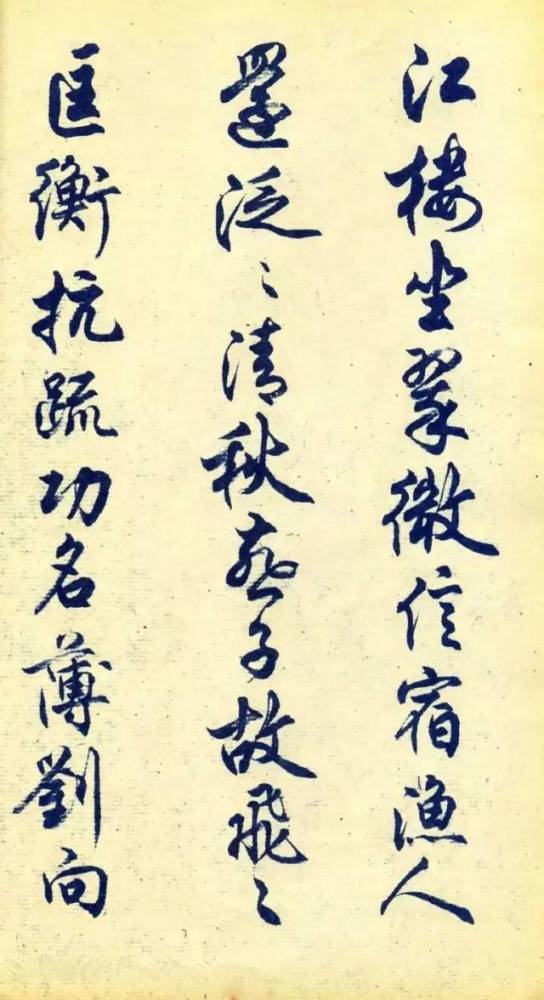 江樓坐翠微信宿漁人
還泛〻清秋燕子故飛〻
匡衡抗疏功名薄劉向